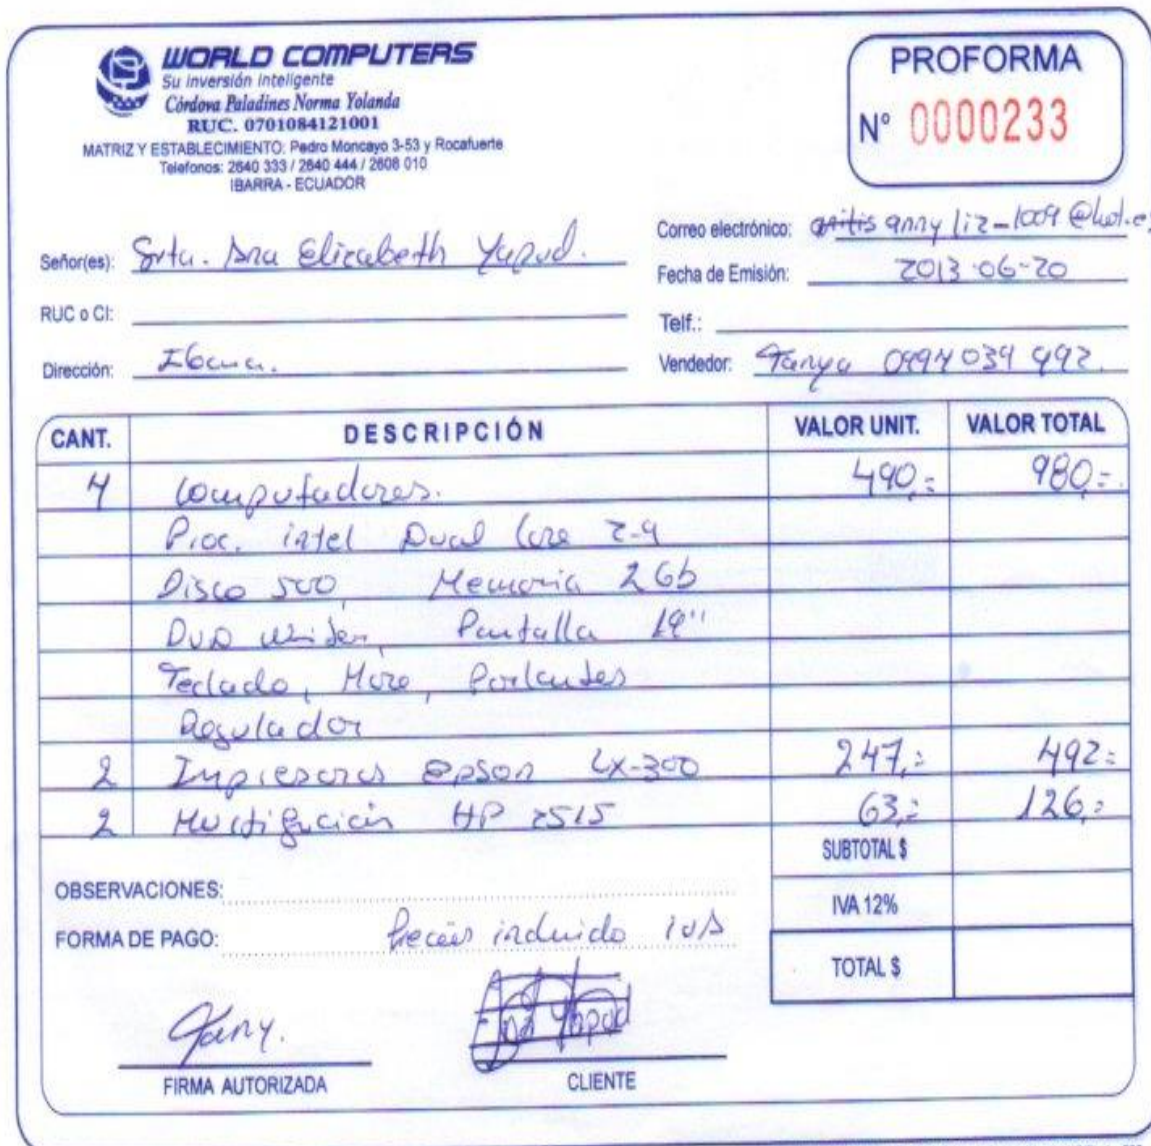 WORLD COMPUTERS
Su inversión inteligente
Córdova Paladines Norma Yolanda
RUC. 0701084121001
MATRIZ Y ESTABLECIMIENTO: Pedro Moncayo 3-53 y Rocafuerte
Telefonos: 2640 333 / 2640 444 / 2608 010
IBARRA - ECUADOR
PROFORMA
N° 0000233
Señor(es): Srta. Ana Elizabeth Yapud.
Correo electrónico: anny liz-1009 @hot.es
Fecha de Emisión: 2013-06-20
RUC o CI:
Telf.:
Dirección: Ibarra.
Vendedor: Tanya 0994 034 492.
CANT. DESCRIPCIÓN VALOR UNIT. VALOR TOTAL
4 Computadores. 490,= 980,=
Proc. intel Dual Core 2-9
Disco 500, Memoria 2Gb
DVD writer, Pantalla 19"
Teclado, Parlantes
Regulador
2 Impresoras Epson LX-300 247,= 492=
2 Multifunción HP 2515 63,= 126,=
SUBTOTAL $
OBSERVACIONES:
IVA 12%
FORMA DE PAGO: Precios incluido IVA
TOTAL $
Tany.
Ana Yapud
FIRMA AUTORIZADA
CLIENTE